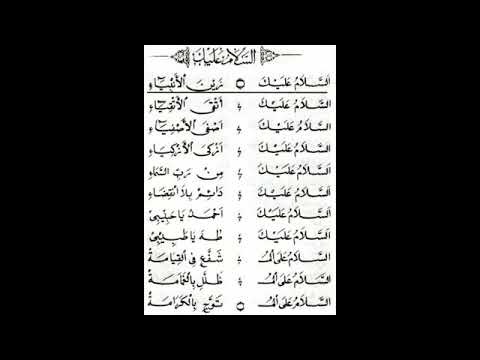 السلام عليك
السلام عليك زين الأنبياء
السلام عليك أتقى الأتقياء
السلام عليك أصفى الأصفياء
السلام عليك أزكى الأزكياء
السلام عليك من رب السماء
السلام عليك دائم بلا انقضاء
السلام عليك أحمد يا حبيبى
السلام عليك طه يا طبيبى
السلام على الـ شفع فى القيامة
السلام على الـ ظلل بالغمامة
السلام على الـ توج بالكرامة